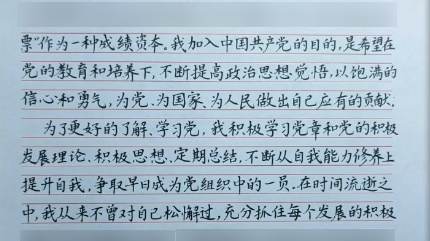 票”作为一种成绩资本。我加入中国共产党的目的,是希望在
党的教育和培养下,不断提高政治思想觉悟,以饱满的
信心和勇气,为党、为国家、为人民做出自己应有的贡献.
为了更好的了解、学习党,我积极学习党章和党的积极
发展理论、积极思想、定期总结,不断从自我能力修养上
提升自我、争取早日成为党组织中的一员.在时间流逝之
中,我从来不曾对自己松懈过,充分抓住每个发展的积极